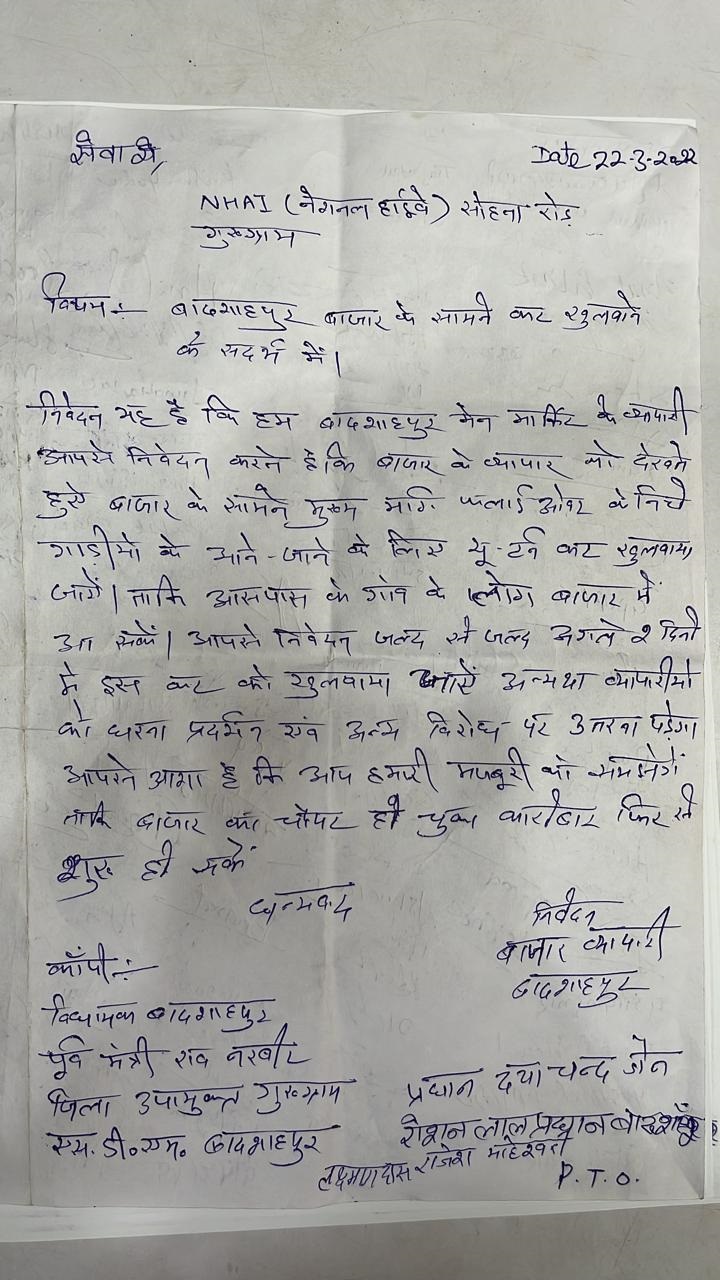 सेवा मे,
Date 22-3-2022
NHAI (नेशनल हाईवे) सोहना रोड़
गुरुग्राम
विषय:- बादशाहपुर बाजार के सामने कट खुलवाने
के सदर्भ में।
निवेदन यह है कि हम बादशाहपुर मेन मार्किट के व्यापारी
आपसे निवेदन करते है कि बाजार के व्यापार को देखते
हुऐ बाजार के सामने मुख्य मार्ग फलाई ओवर के निचे
गाड़ीयो के आने-जाने के लिए यू-टर्न कट खुलवाया
जायें। ताकि आसपास के गांव के लोग बाजार में
आ सकें। आपसे निवेदन जल्द से जल्द अगले २ दिनो
मे इस कट को खुलवाया जायें अन्यथा व्यापारीयो
को धरना प्रदर्शन एवं अन्य विरोध पर उतरना पड़ेगा।
आपसे आशा है कि आप हमारी मजबूरी को समझेगें
ताकि बाजार का चौपट हो चुका कारोबार फिर से
शुरु हो सकें
धन्यवाद
निवेदन
बाजार व्यापारी
बादशाहपुर
कॉपी:-
विधायक बादशाहपुर
पूर्व मंत्री राव नरबीर
जिला उपायुक्त गुरुग्राम
एस. डी. एम. बादशाहपुर
प्रधान दया चन्द जैन
रोशन लाल प्रधान बादशाहपुर
लक्ष्मणदास राजेश माहेश्वरी
P.T.O.